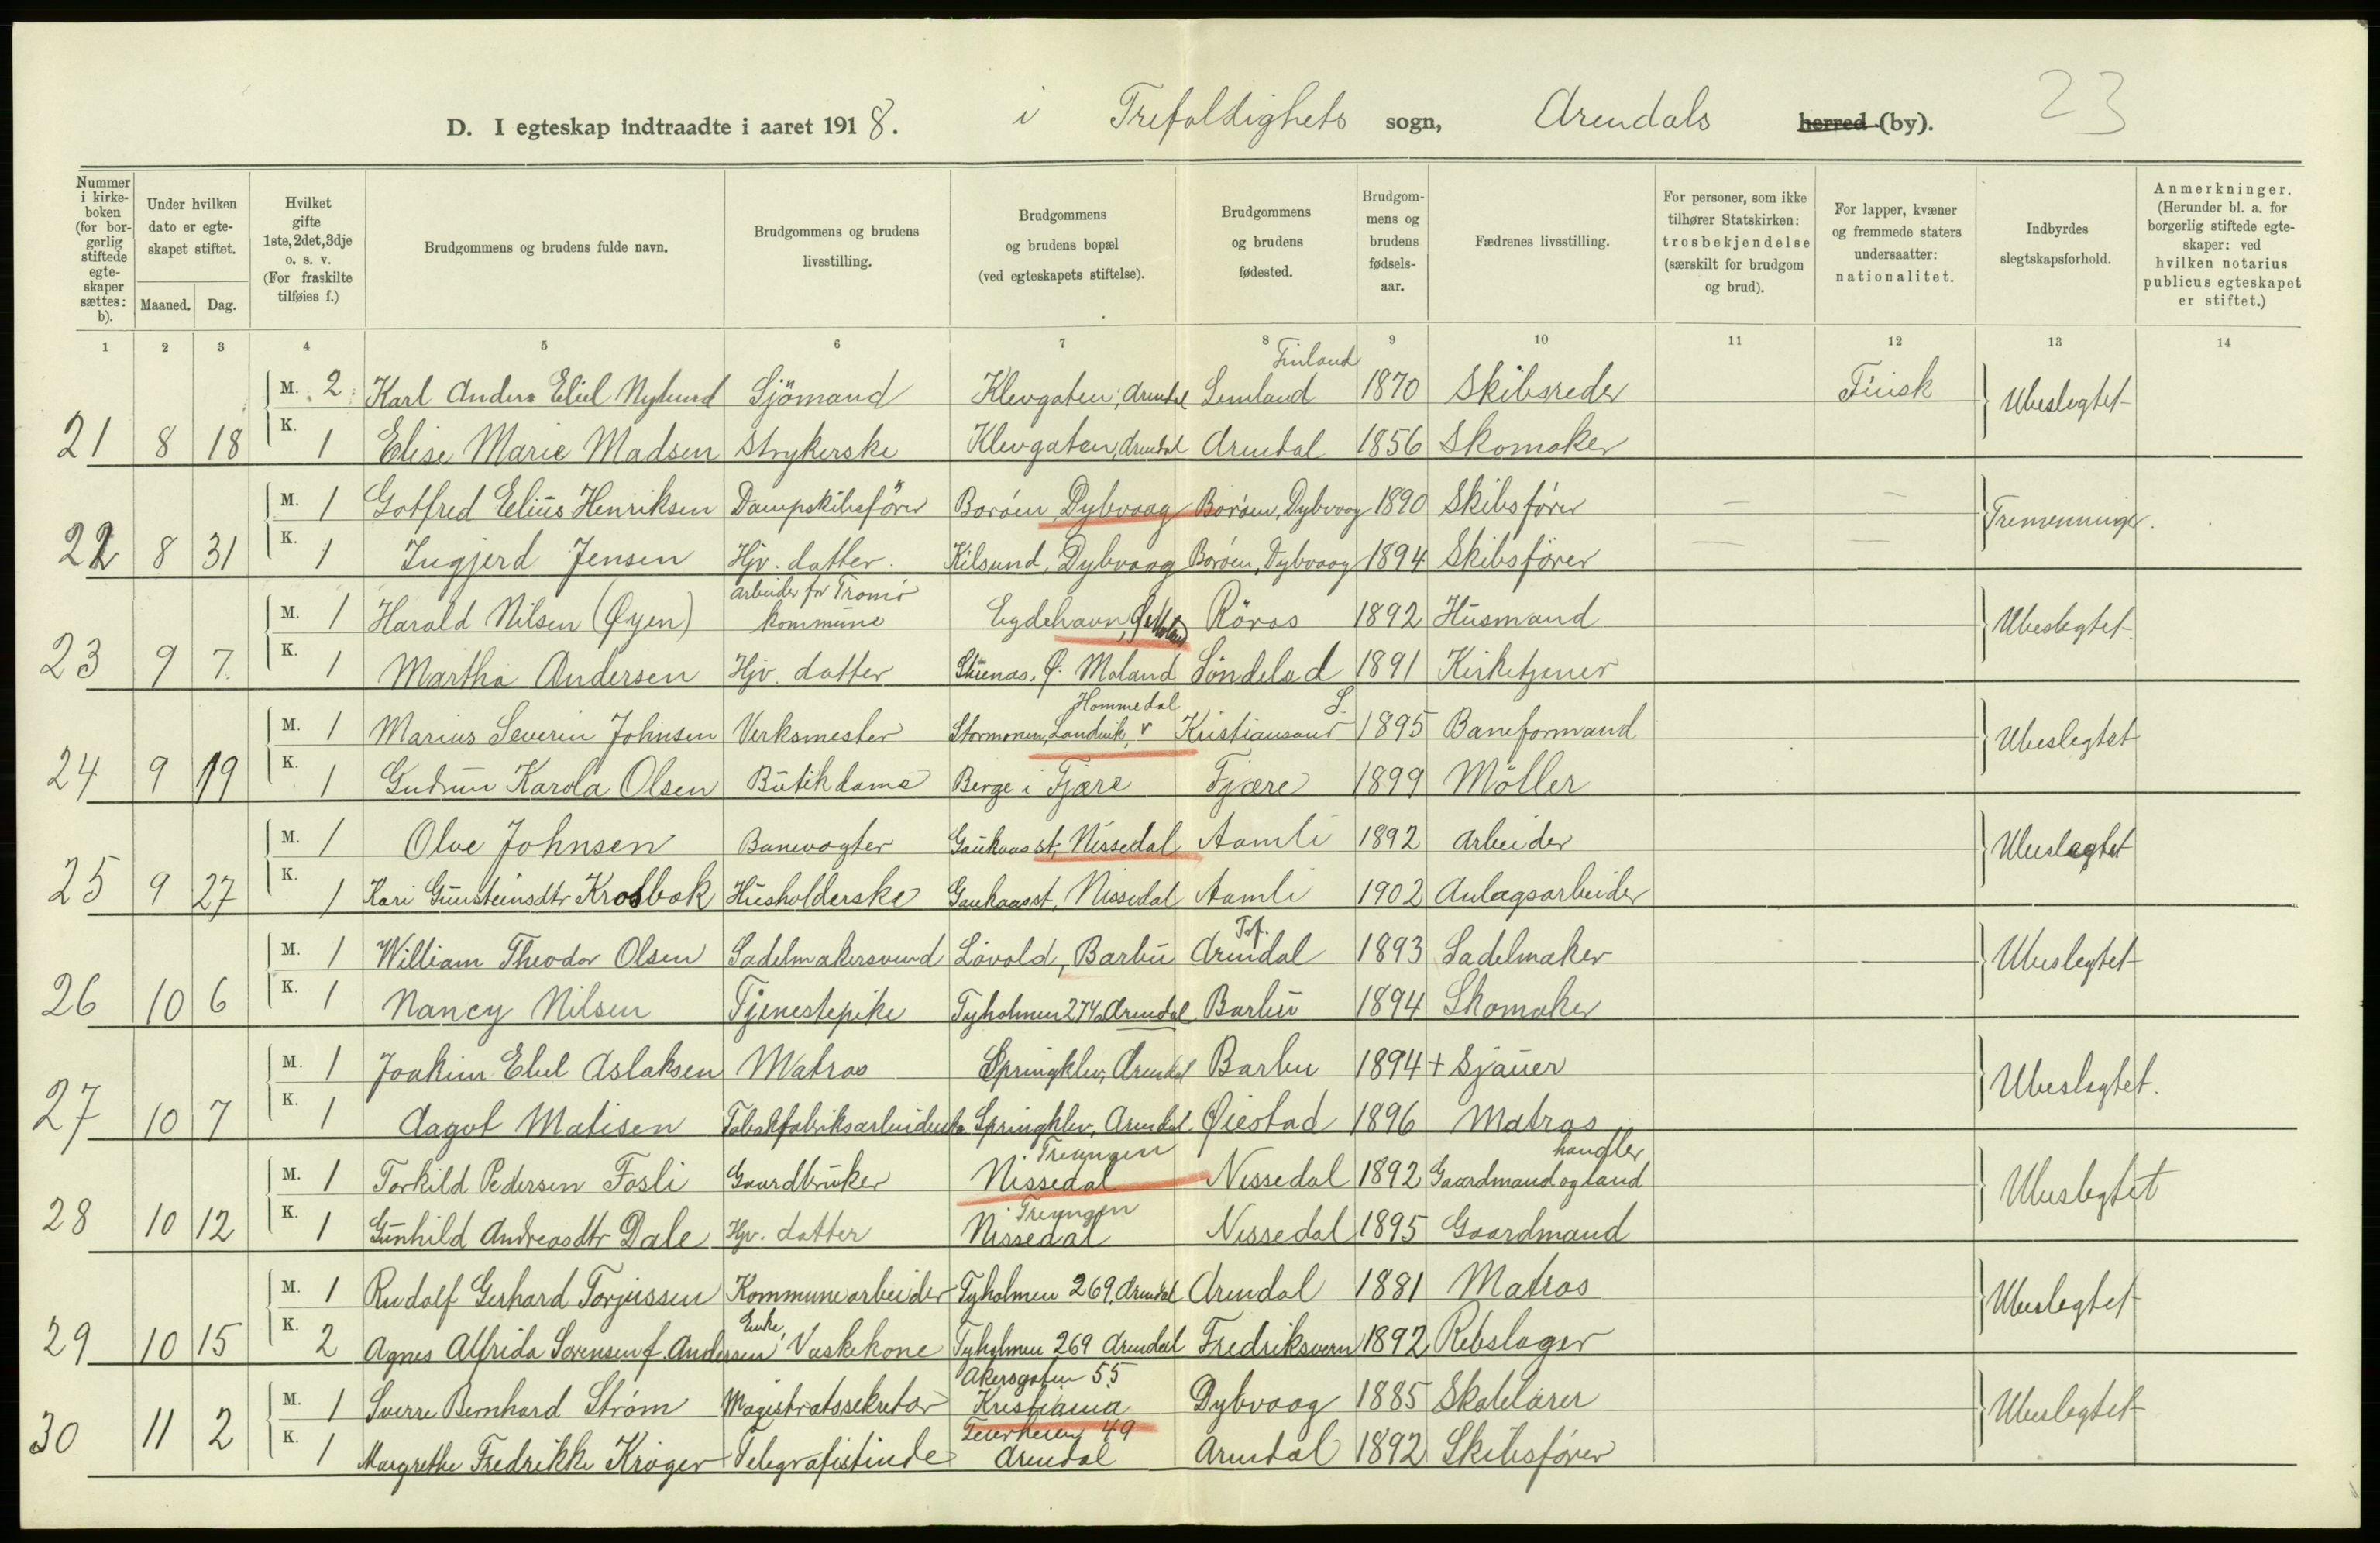 23
D. I egteskap indtraadte i aaret 1918. i Trefoldighets sogn, Arendals herred (by).
Nummer i kirkeboken (for borgerlig stiftede egteskaper sættes: b).
Under hvilken dato er egteskapet stiftet.
Maaned. Dag.
Hvilket gifte 1ste, 2det, 3dje o. s. v. (For fraskilte tilføies f.)
Brudgommens og brudens fulde navn.
Brudgommens og brudens livsstilling.
Brudgommens og brudens bopæl (ved egteskapets stiftelse).
Brudgommens og brudens fødested.
Brudgommens og brudens fødselsaar.
Fædrenes livsstilling.
For personer, som ikke tilhører Statskirken: trosbekjendelse (særskilt for brudgom og brud).
For lapper, kvæner og fremmede staters undersaatter: nationalitet.
Indbyrdes slegtskapsforhold.
Anmerkninger. (Herunder bl. a. for borgerlig stiftede egteskaper: ved hvilken notarius publicus egteskapet er stiftet.)
1 2 3 4 5 6 7 8 9 10 11 12 13 14
Finland
M. 2 Karl Anders Eliel Nylund Sjömand Klevgaten, Arendal Lemland 1870 Skibsreder Finsk Ubeslegtet
21 8 18 K. 1 Elise Marie Madsen Strykerske Klevgaten, Arendal Arendal 1856 Skomaker
M. 1 Gotfred Elius Henriksen Dampskibsfører Borøen, Dybvaag Borøen, Dybvaag 1890 Skibsfører — — Tremenninger.
22 8 31 K. 1 Ingjerd Jensen Hjv. datter. Kilsund, Dybvaag Borøen, Dybvaag 1894 Skibsfører — —
arbeider for Tromø
M. 1 Harald Nilsen (Øyen) kommune Eydehavn, Ø. Moland Röros 1892 Husmand Ubeslegtet.
23 9 7. K. 1 Martha Andersen Hjv. datter Ø. Moland Söndeled 1891 Kirketjener
Hommedal S.
M. 1 Marius Severin Johnsen Verksmester Landvik Kristiansand 1895 Baneformand Ubeslegtet
24 9 19 K. 1 Gudrun Karola Olsen Butikdame Berge i Fjære Fjære 1899 Möller
M. 1 Olve Johnsen Banevogter Gaukaas st, Nissedal Aamli 1892 Arbeider Ubeslegtet
25 9 27 K. 1 Kari Gunsteinsdtr Krosbok Husholderske Gaukaas st, Nissedal Aamli 1902 Anlægsarbeider
Trf.
M. 1 William Theodor Olsen Sadelmakersvend Løvold, Barbu Arendal 1893 Sadelmaker Ubeslegtet
26 10 6 K. 1 Nancy Nilsen Tjenestepike Tyholmen 274 Arendal Barbu 1894 Skomaker
M. 1 Joakim Elul Aslaksen Matros Springklev, Arendal Barbu 1894 + Sjauer Ubeslegtet.
27 10 7 K. 1 Aagot Matisen Tobakfabriksarbeiderske Springklev, Arendal Øiestad 1896 Matros
Treungen handler
M. 1 Torkild Pedersen Fosli Gaardbruker Nissedal Nissedal 1892 Gaardmand og land Ubeslegtet
Treungen
28 10 12 K. 1 Gunhild Andreasdtr Dale Hjv. datter Nissedal Nissedal 1895 Gaardmand
M. 1 Rudolf Gerhard Torjussen Kommunearbeider Tyholmen 269, Arendal Arendal 1881 Matros Ubeslegtet
Enke,
29 10 15 K. 2 Agnes Alfrida Sørensen f. Andersen Vaskekone Tyholmen 269 Arendal Fredriksvern 1892 Rebslager
Akersgaten 55
M. 1 Sverre Bernhard Strøm Magistratssekretær Kristiania Dybvaag 1885 Skolelærer Ubeslegtet
49
30 11 2 K. 1 Margrethe Fredrikke Krøger Telegrafistinde Arendal Arendal 1892 Skibsfører